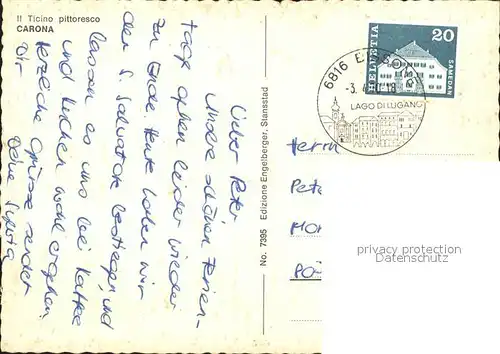 Il Ticino pittoresco
CARONA
Lieber Peter
Unsere schönen Ferien-
tage gehen leider wieder
zu Ende. Heute haben wir
den S. Salvatore bestiegen, und
lassen es uns bei Kaffee
und Kuchen wohl ergehen.
Herzliche Grüsse sendet
Dir Deine Sylvia
No. 7395 Edizione Engelberger, Stansstad
HELVETIA
20
SAMEDAN
6816
LAGO DI LUGANO
Herrn
Pete
privacy protection
Datenschutz